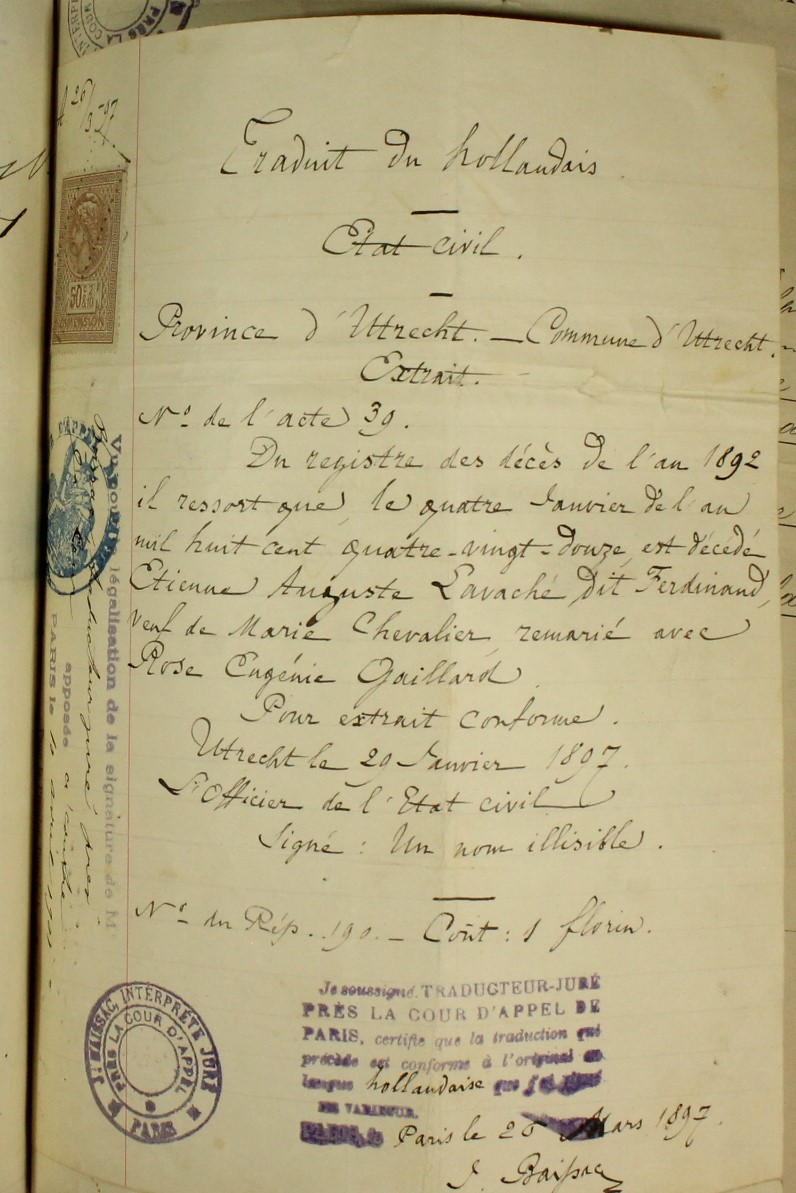 Traduit du hollandais
Etat civil.
Province d'Uttrecht. — Commune d'Uttrecht.
Extrait.
Nº de l'acte 39.
Du registre des décès de l'an 1892
il ressort que, le quatre Janvier de l'an
mil huit cent quatre-vingt-douze, est décédé
Etienne Auguste Lavaché dit Ferdinand,
veuf de Marie Chevalier, remarié avec
Rose Eugénie Gaillard.
Pour extrait conforme.
Uttrecht le 29 Janvier 1897.
L'Officier de l'Etat civil
Signé : Un nom illisible.
Nº du Rép. 190. — Coût : 1 florin.
Je soussigné, TRADUCTEUR-JURÉ
PRÈS LA COUR D'APPEL DE
PARIS, certifie que la traduction qui
précède est conforme à l'original en
langue hollandaise
NE VARIETUR.
Paris le 26 Mars 1897.
J. Baissac
J. BAISSAC, INTERPRÈTE JURÉ
PRÈS LA COUR D'APPEL
PARIS
Vu pour légalisation de la signature de M
apposée
PARIS le
50c
INTERPR
PRÈS LA
COUR